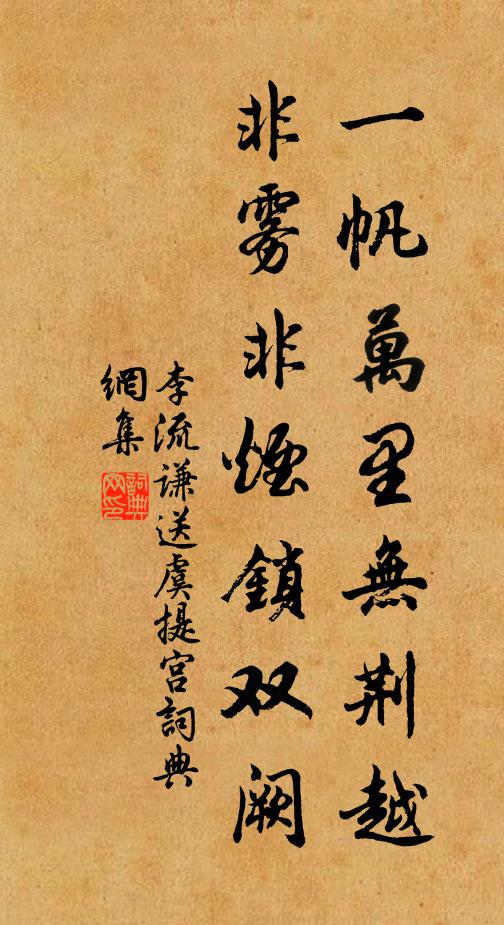 一帆萬里無荆越
非雾非煙鎖双阙
李流谦送虞提宫詞典
網集
詞典网印